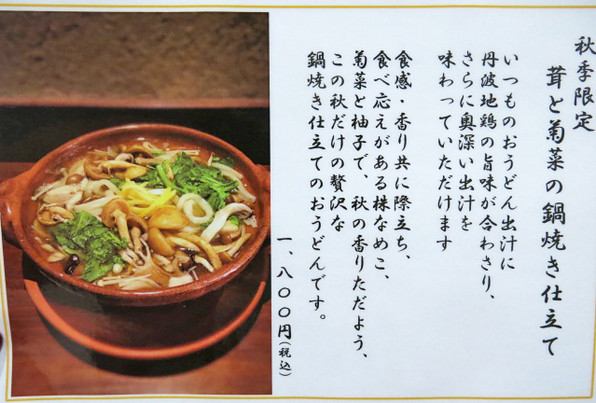 秋季限定
茸と菊菜の鍋焼き仕立て
いつものおうどん出汁に
丹波地鶏の旨味が合わさり、
さらに奥深い出汁を
味わっていただけます
食感・香り共に際立ち、
食べ応えがある株なめこ、
菊菜と柚子で、秋の香りただよう、
この秋だけの贅沢な
鍋焼き仕立てのおうどんです。
一、八〇〇円(税込)